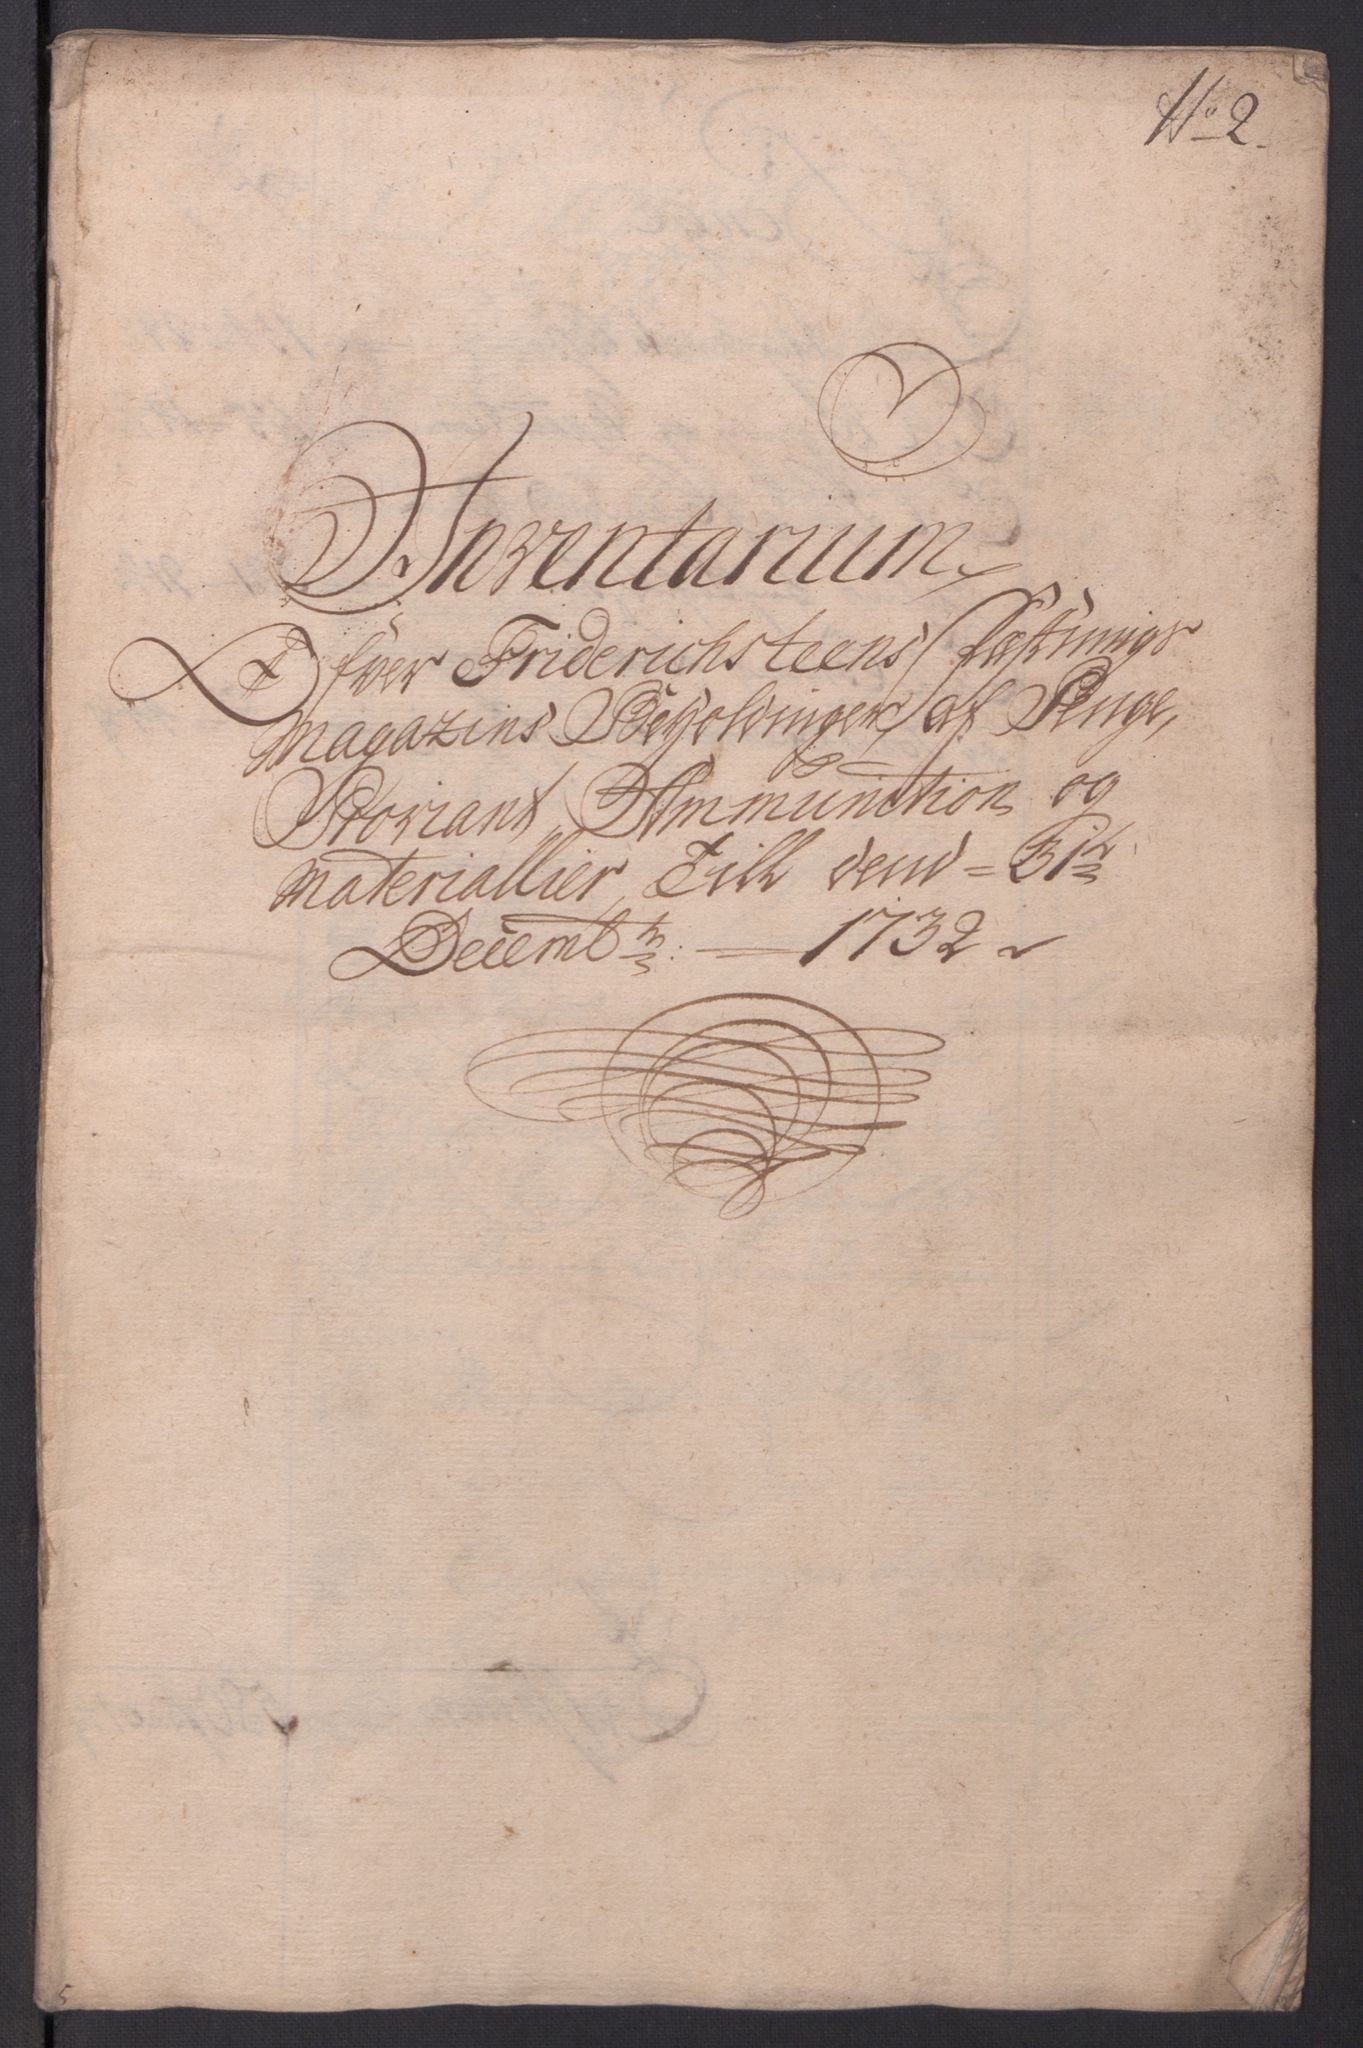 No 2.
Inventarium
Ofver Friderichsteens Fæstnings
Magazins Beholdinger af Penge,
Proviant, Ammunition og
Materiallier, Till dend = 31te
Decembr: — 1732
5